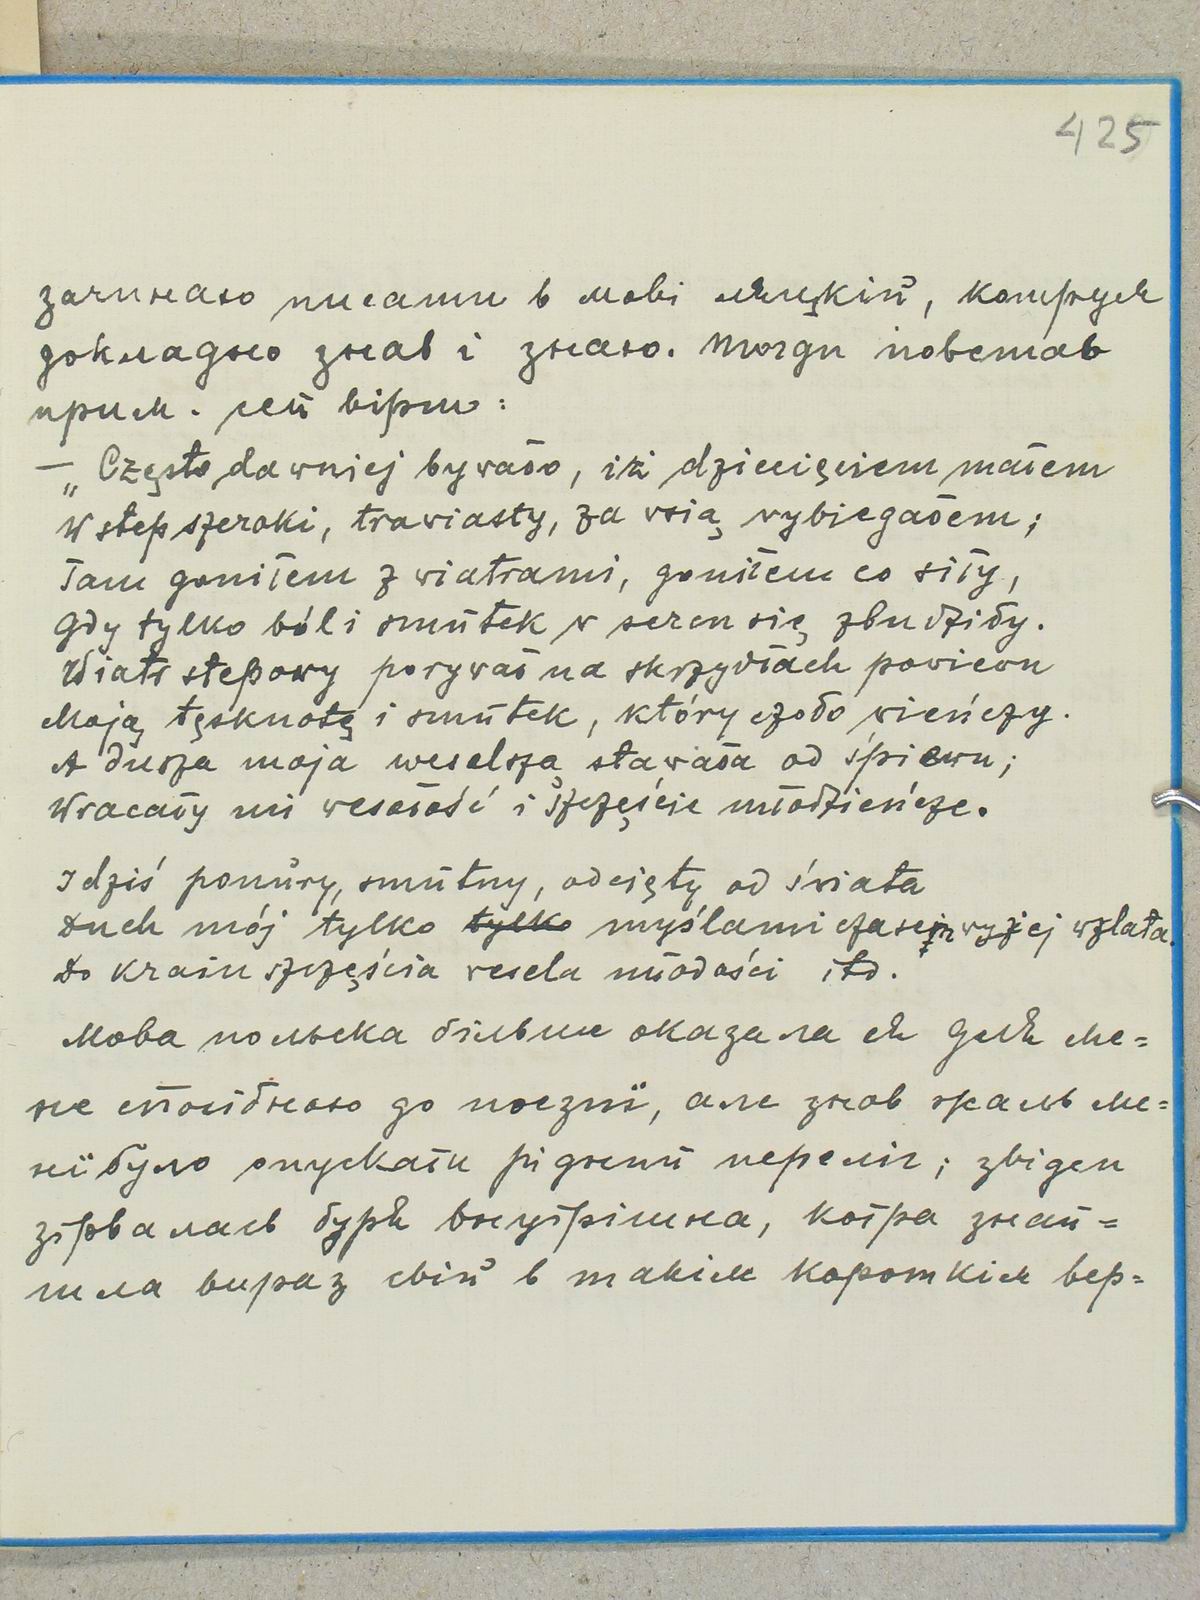 425
зачинаю писати в мові ляцкій, котрую
докладно знав і знаю. Тогди повстав
прим. сей вірш:
— „Często dawniej bywało, iż dziecięciem małem
W step szeroki, trawiasty, za wsią wybiegałem;
Tam goniłem z wiatrami, goniłem co siły,
Gdy tylko ból i smutek w sercu się zbudziły.
Wiatr stepowy porywał na skrzydłach powiewu
Moją tęsknotę i smutek, który czoło wieńczy.
A dusza moja weselszą stawała od śpiewu;
Wracały mi wesołość i szczęście młodzieńcze.
I dziś ponury, smutny, odcięty od świata
Duch mój tylko tylko myślami czasem wyżej wzlata.
Do krain szczęścia wesela młodości itd.
Мова польска більше оказала ся для ме=
не спосібною до поезиї, але знов жаль ме=
нї було опускати рідний переліг; звідси
зірвалась буря внутрішна, котра знай=
шла вираз свій в таким коротким вер=